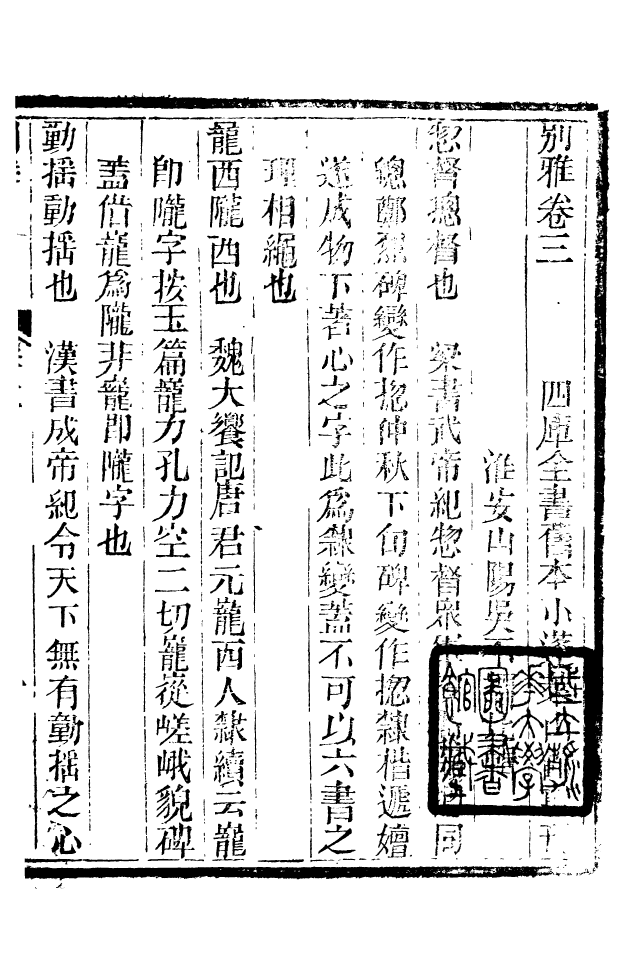 別雅卷三　四庫全書舊本小蓬
淮安山陽吳
惣督總督也　梁書武帝紀惣督衆
總鄭烈碑變作揔仲秋下旬碑變作揔隸楷遞嬗
遂成物下著心之字此爲隸變蓋不可以六書之
理相繩也
巃西隴西也　魏大饗記唐君元巃西人隸續云巃
卽隴字按玉篇巃力孔力空二切巃嵸嵯峨貌碑
蓋借巃爲隴非巃卽隴字也
勭搖動搖也　漢書成帝紀令天下無有勭搖之心